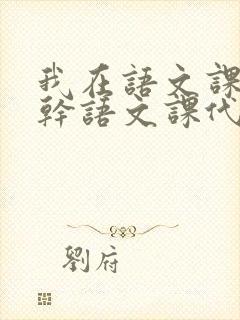 我在語文課
幹語文課代
劉府